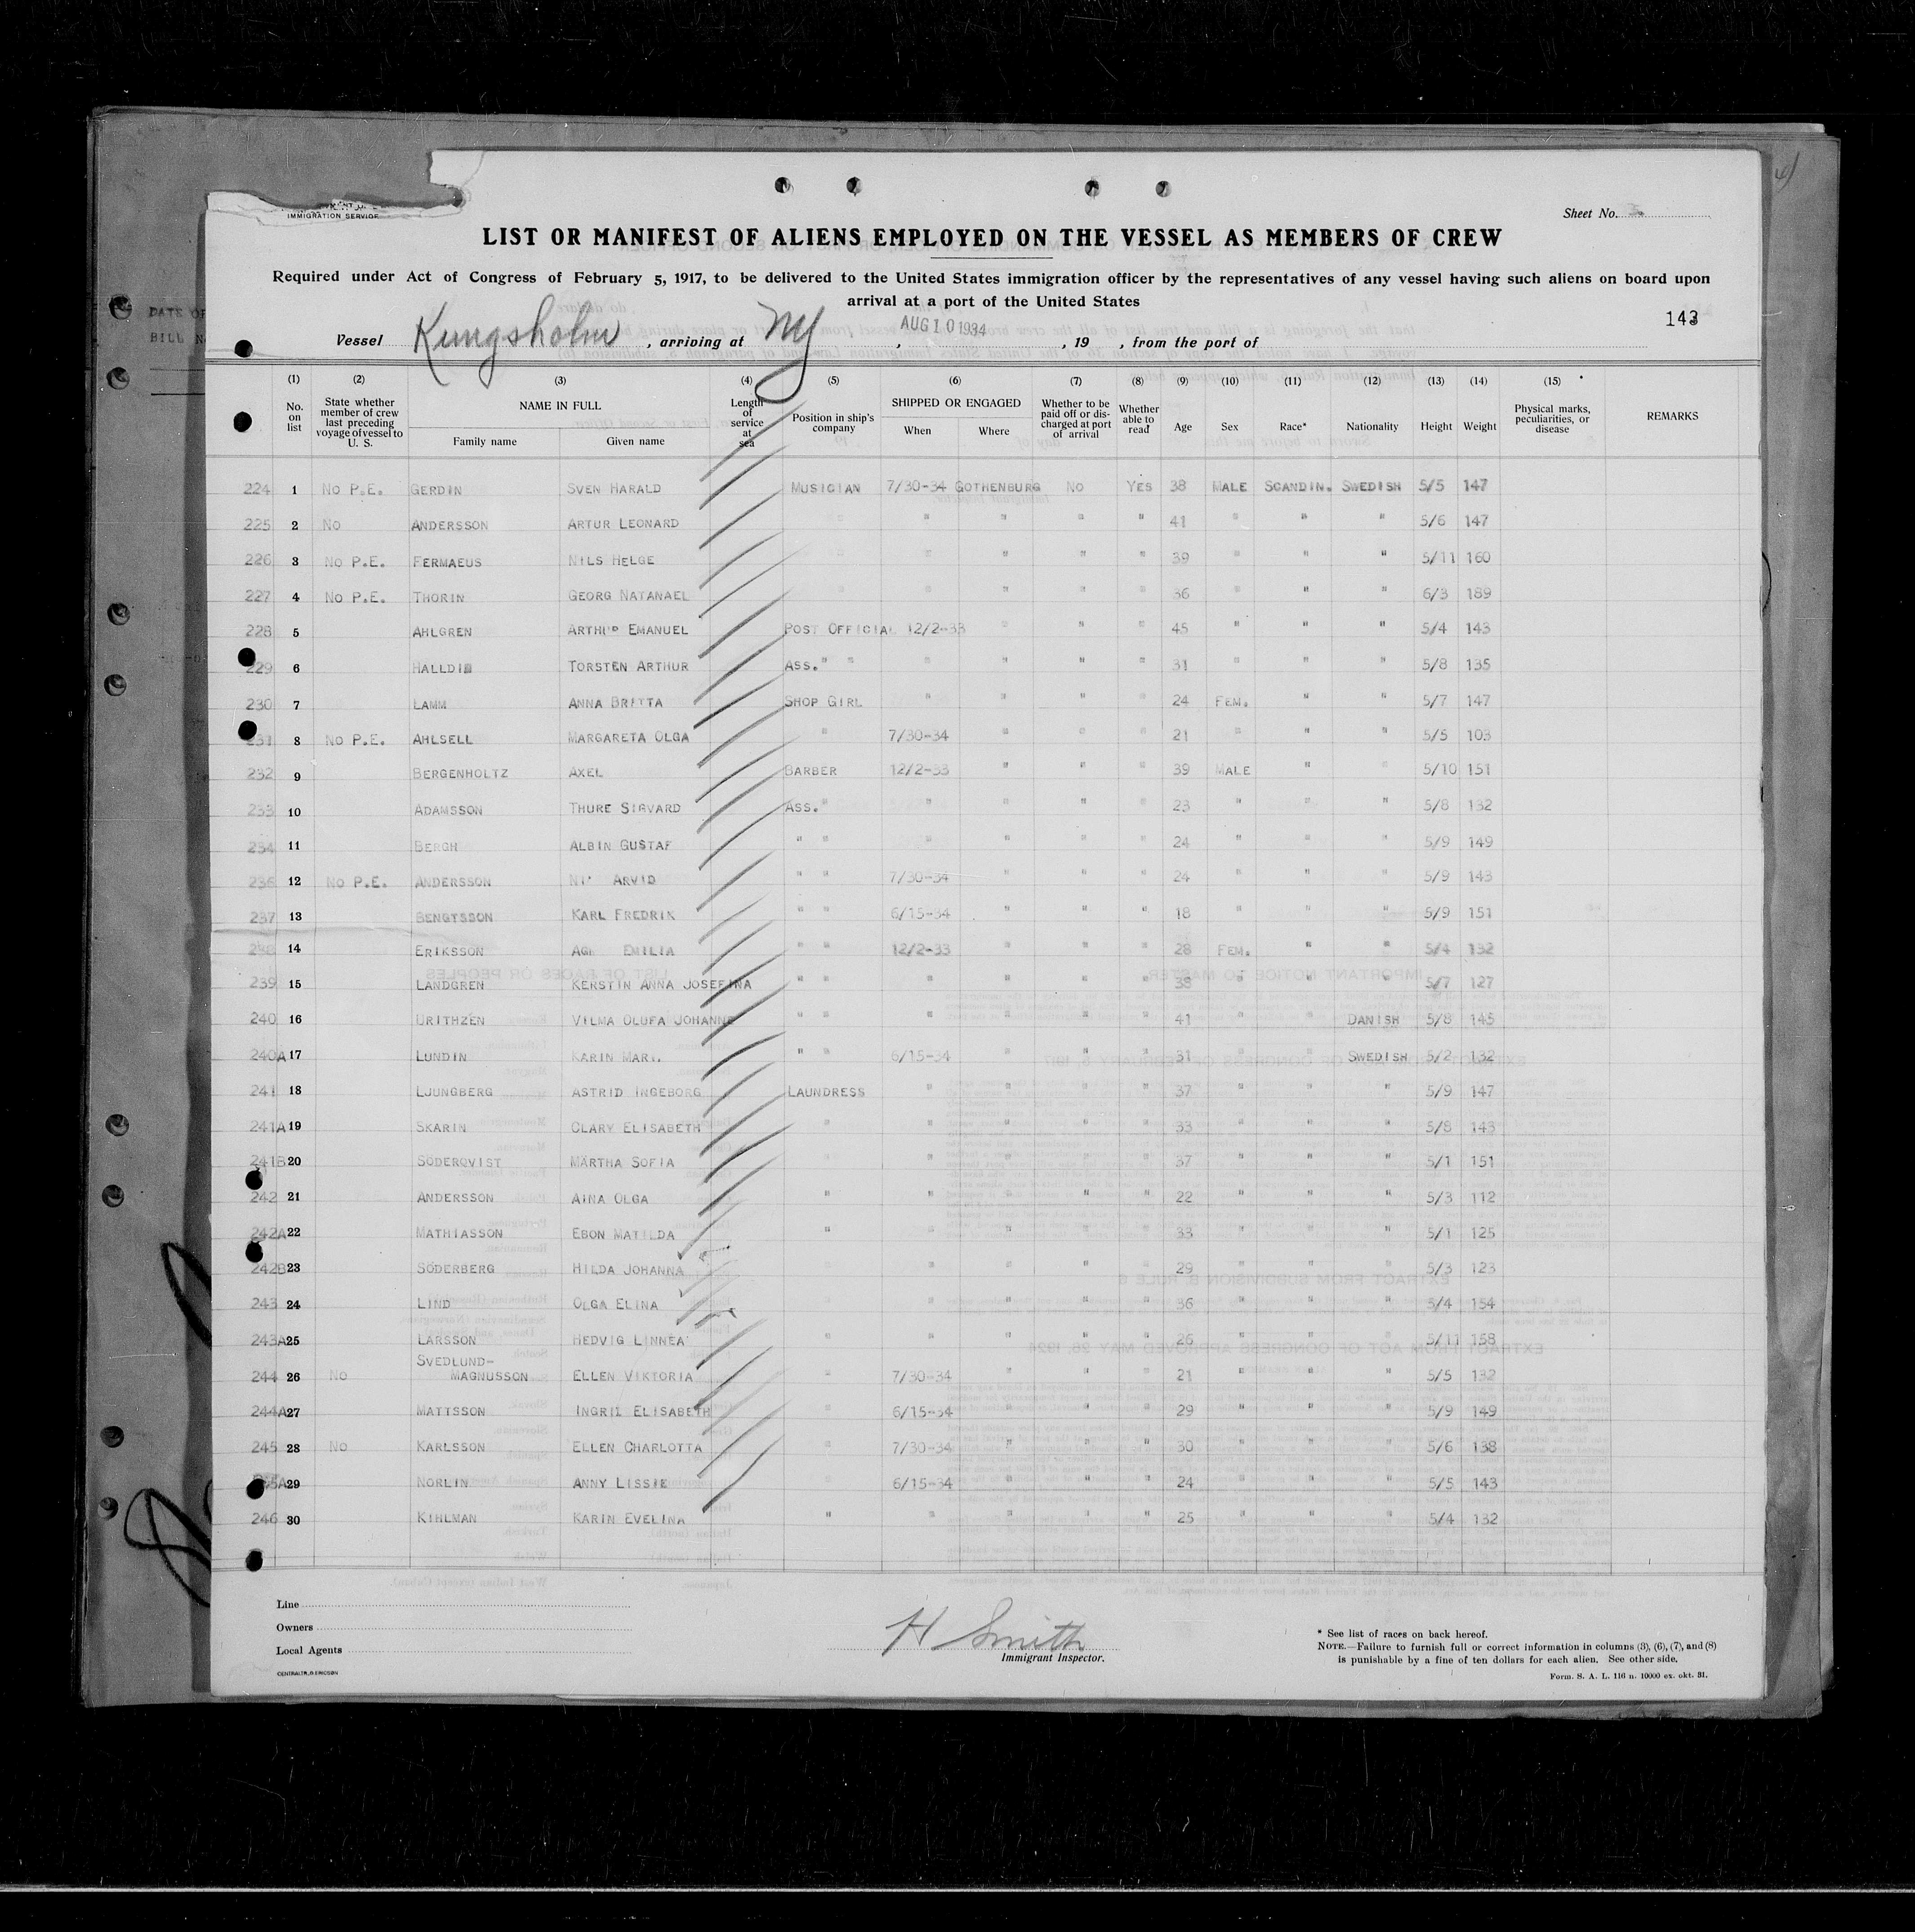 IMMIGRATION SERVICE
Sheet No.
LIST OR MANIFEST OF ALIENS EMPLOYED ON THE VESSEL AS MEMBERS OF CREW
Required under Act of Congress of February 5, 1917, to be delivered to the United States immigration officer by the representatives of any vessel having such aliens on board upon
arrival at a port of the United States
143
Vessel Kungsholm, arriving at NY, AUG 10 1934, 19 , from the port of
(1) (2) (3) (4) (5) (6) (7) (8) (9) (10) (11) (12) (13) (14) (15)
No. on list State whether member of crew last preceding voyage of vessel to U. S. NAME IN FULL Family name Given name Length of service at sea Position in ship's company SHIPPED OR ENGAGED When Where Whether to be paid off or discharged at port of arrival Whether able to read Age Sex Race* Nationality Height Weight Physical marks, peculiarities, or disease REMARKS
224 1 No P.E. GERDIN SVEN HARALD MUSICIAN 7/30-34 GOTHENBURG No YES 38 MALE SCANDIN. SWEDISH 5/5 147
225 2 No ANDERSSON ARTUR LEONARD " " " " " 41 " " " 5/6 147
226 3 No P.E. FERMAEUS NILS HELGE " " " " " 39 " " " 5/11 160
227 4 No P.E. THORIN GEORG NATANAEL " " " " " 36 " " " 6/3 189
228 5 AHLGREN ARTHUR EMANUEL POST OFFICIAL 12/2-33 " " " 45 " " " 5/4 143
229 6 HALLDIN TORSTEN ARTHUR ASS. " " " " " " 31 " " " 5/8 135
230 7 LAMM ANNA BRITTA SHOP GIRL " " " " 24 FEM. " " 5/7 147
231 8 No P.E. AHLSELL MARGARETA OLGA " 7/30-34 " " " 21 " " " 5/5 103
232 9 BERGENHOLTZ AXEL BARBER 12/2-33 " " " 39 MALE " " 5/10 151
233 10 ADAMSSON THURE SIGVARD ASS. " " " " " 23 " " " 5/8 132
234 11 BERGH ALBIN GUSTAF " " " " " " 24 " " " 5/9 149
236 12 No P.E. ANDERSSON ARVID " " 7/30-34 " " " 24 " " " 5/9 143
237 13 BENGTSSON KARL FREDRIK " " 6/15-34 " " " 18 " " " 5/9 151
238 14 ERIKSSON EMILIA " " 12/2-33 " " " 28 FEM. " " 5/4 132
239 15 LANDGREN KERSTIN ANNA JOSEFINA " " " " " " 38 " " " 5/7 127
240 16 URITHZÉN VILMA OLUFA JOHANNE " " " " " " 41 " " DANISH 5/8 145
240A 17 LUNDIN KARIN " " 6/15-34 " " " 31 " " SWEDISH 5/2 132
241 18 LJUNGBERG ASTRID INGEBORG LAUNDRESS " " " " 37 " " " 5/9 147
241A 19 SKARIN CLARY ELISABETH " " " " " 33 " " " 5/8 143
241B 20 SÖDERQVIST MÄRTHA SOFIA " " " " " 37 " " " 5/1 151
242 21 ANDERSSON AINA OLGA " " " " " 22 " " " 5/3 112
242A 22 MATHIASSON EBON MATILDA " " " " " 33 " " " 5/1 125
242B 23 SÖDERBERG HILDA JOHANNA " " " " " 29 " " " 5/3 123
243 24 LIND OLGA ELINA " " " " " 36 " " " 5/4 154
243A 25 LARSSON HEDVIG LINNEA " " " " " 26 " " " 5/11 158
SVEDLUND-
244 26 No MAGNUSSON ELLEN VIKTORIA " 7/30-34 " " " 21 " " " 5/5 132
244A 27 MATTSSON INGRIL ELISABETH " 6/15-34 " " " 29 " " " 5/9 149
245 28 No KARLSSON ELLEN CHARLOTTA " 7/30-34 " " " 30 " " " 5/6 138
29 NORLIN ANNY LISSIE " 6/15-34 " " " 24 " " " 5/5 143
246 30 KIHLMAN KARIN EVELINA " " " " " 25 " " " 5/4 132
Line
Owners
Local Agents
CENTRALTR., G. ERICSON
H Smith
Immigrant Inspector.
* See list of races on back hereof.
NOTE.—Failure to furnish full or correct information in columns (3), (6), (7), and (8)
is punishable by a fine of ten dollars for each alien. See other side.
Form. S. A. L. 116 n. 10000 ex. okt. 31.